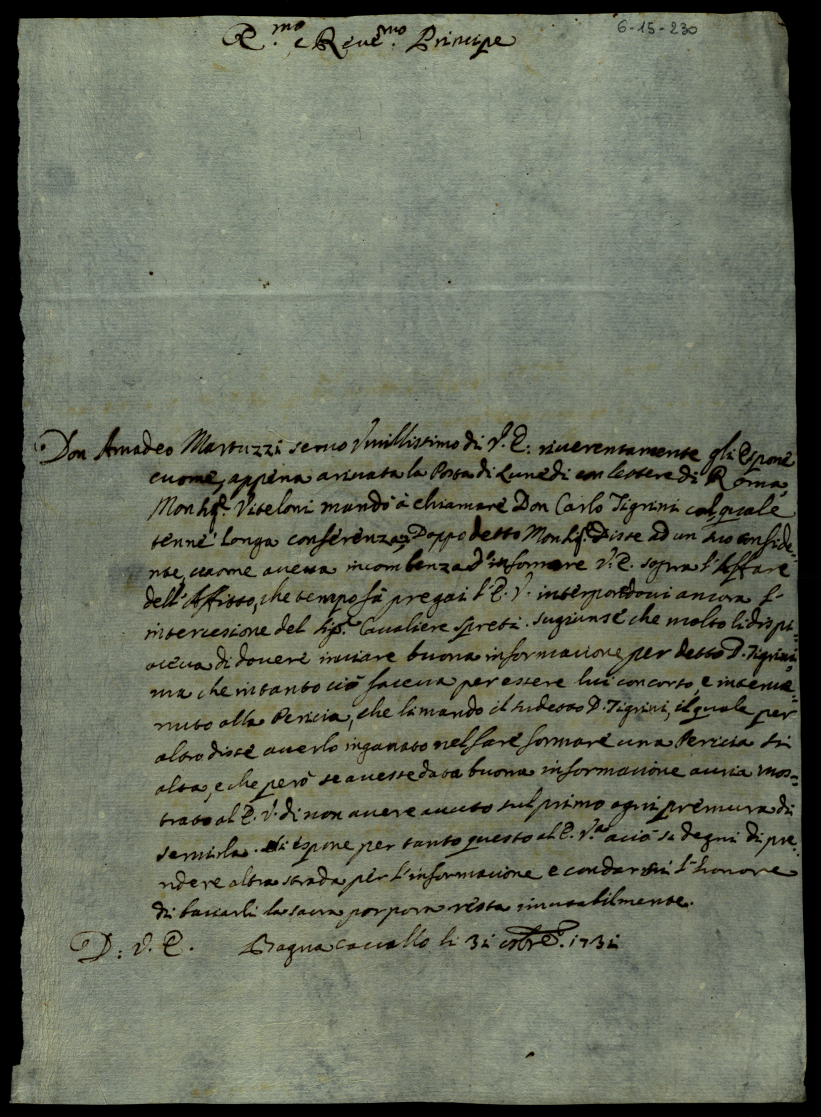 6-15-230
E.mo e Reve.mo Principe
Don Amadeo Martuzzi servo Umillissimo di V. E: riverentemente gli Espone
cuome, appena arivata la Posta di Lunedi con lettere di Roma,
Monsig.r Viteloni mandò à chiamare Don Carlo Tigrini col quale
tenne longa conferenza, Doppo detto Monsig.r Disse ad un suo confide=
nte, cuome aveva incombenza d'informare V. E. sopra l'Affare
dell'Affitto, che tempo fà pregai l'E. V. interpondovi ancora l'
intercesione del Sig.r Cavaliere Spreti. sugiunse che molto li dispi=
aceva di dovere inviare buona informacione per detto D. Tigrini,
ma che intanto ciò faceva per essere lui concorso, e interve=
nuto alla Pericia, che li mandò il sudetto D. Tigrini, il quale per
altro disse averlo inganato nel fare formare una Pericia si
alta, e che però se avesse data buona informacione avria mos=
trato al E. V. di non avere avuto sul primo ogni premura di
servirla. Si espone per tanto questo al E. V.ra aciò si degni di pre=
ndere altra strada per l'informacione e con darmi l'honore
di baciarli la sacra porpora resta imutabilmente.
D: V. E. Bagnacavallo li 31 ottbre. 1731